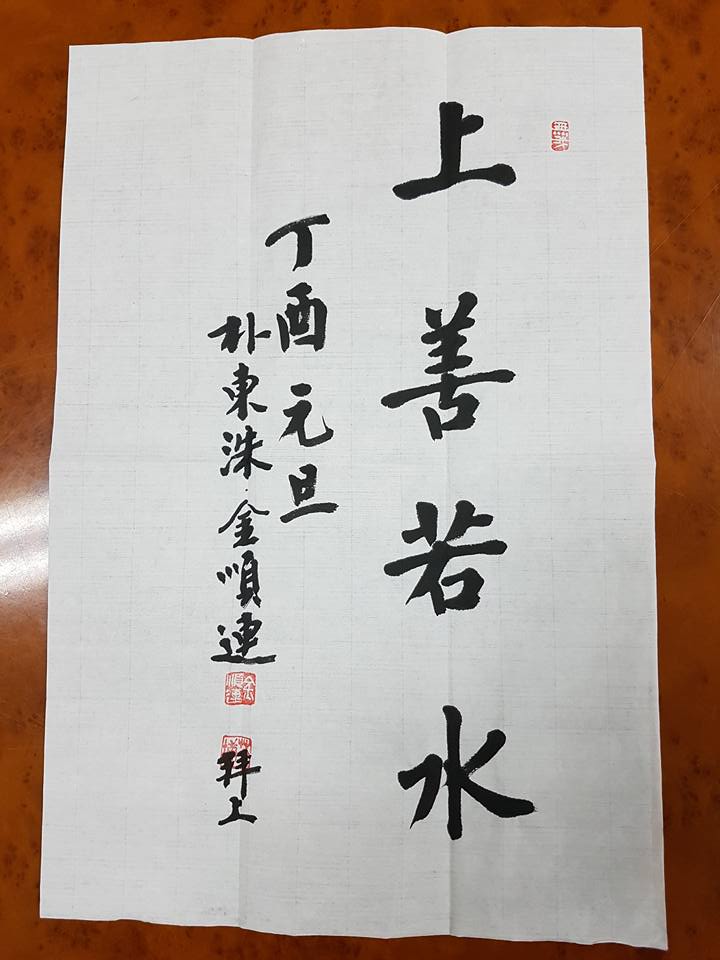 上善若水
丁酉元旦
朴東洙·金順連
拜上
金順連